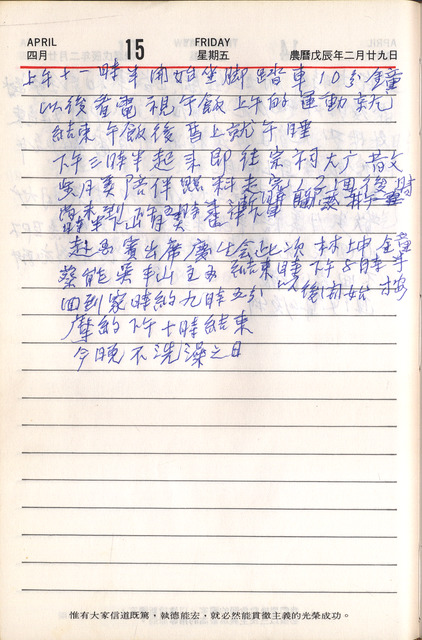 APRIL
四月
15
FRIDAY
星期五
農曆戊辰年二月廿九日
上午十一時半開始坐脚踏車10分鐘
以後看電視午飯上午的運動就
結束午飯後馬上就午睡
下午三時半起來即往宗祠大广散
步月美陪伴 走完
赴 賓出席慶生會此次林坤鐘
蔡能 吳半山主办結束時下午8時半
回到家時約九時五分以後開始按
摩約下午十時結束
今晚不洗澡之日
惟有大家信道既篤，執德能宏，就必然能貫徹主義的光榮成功。